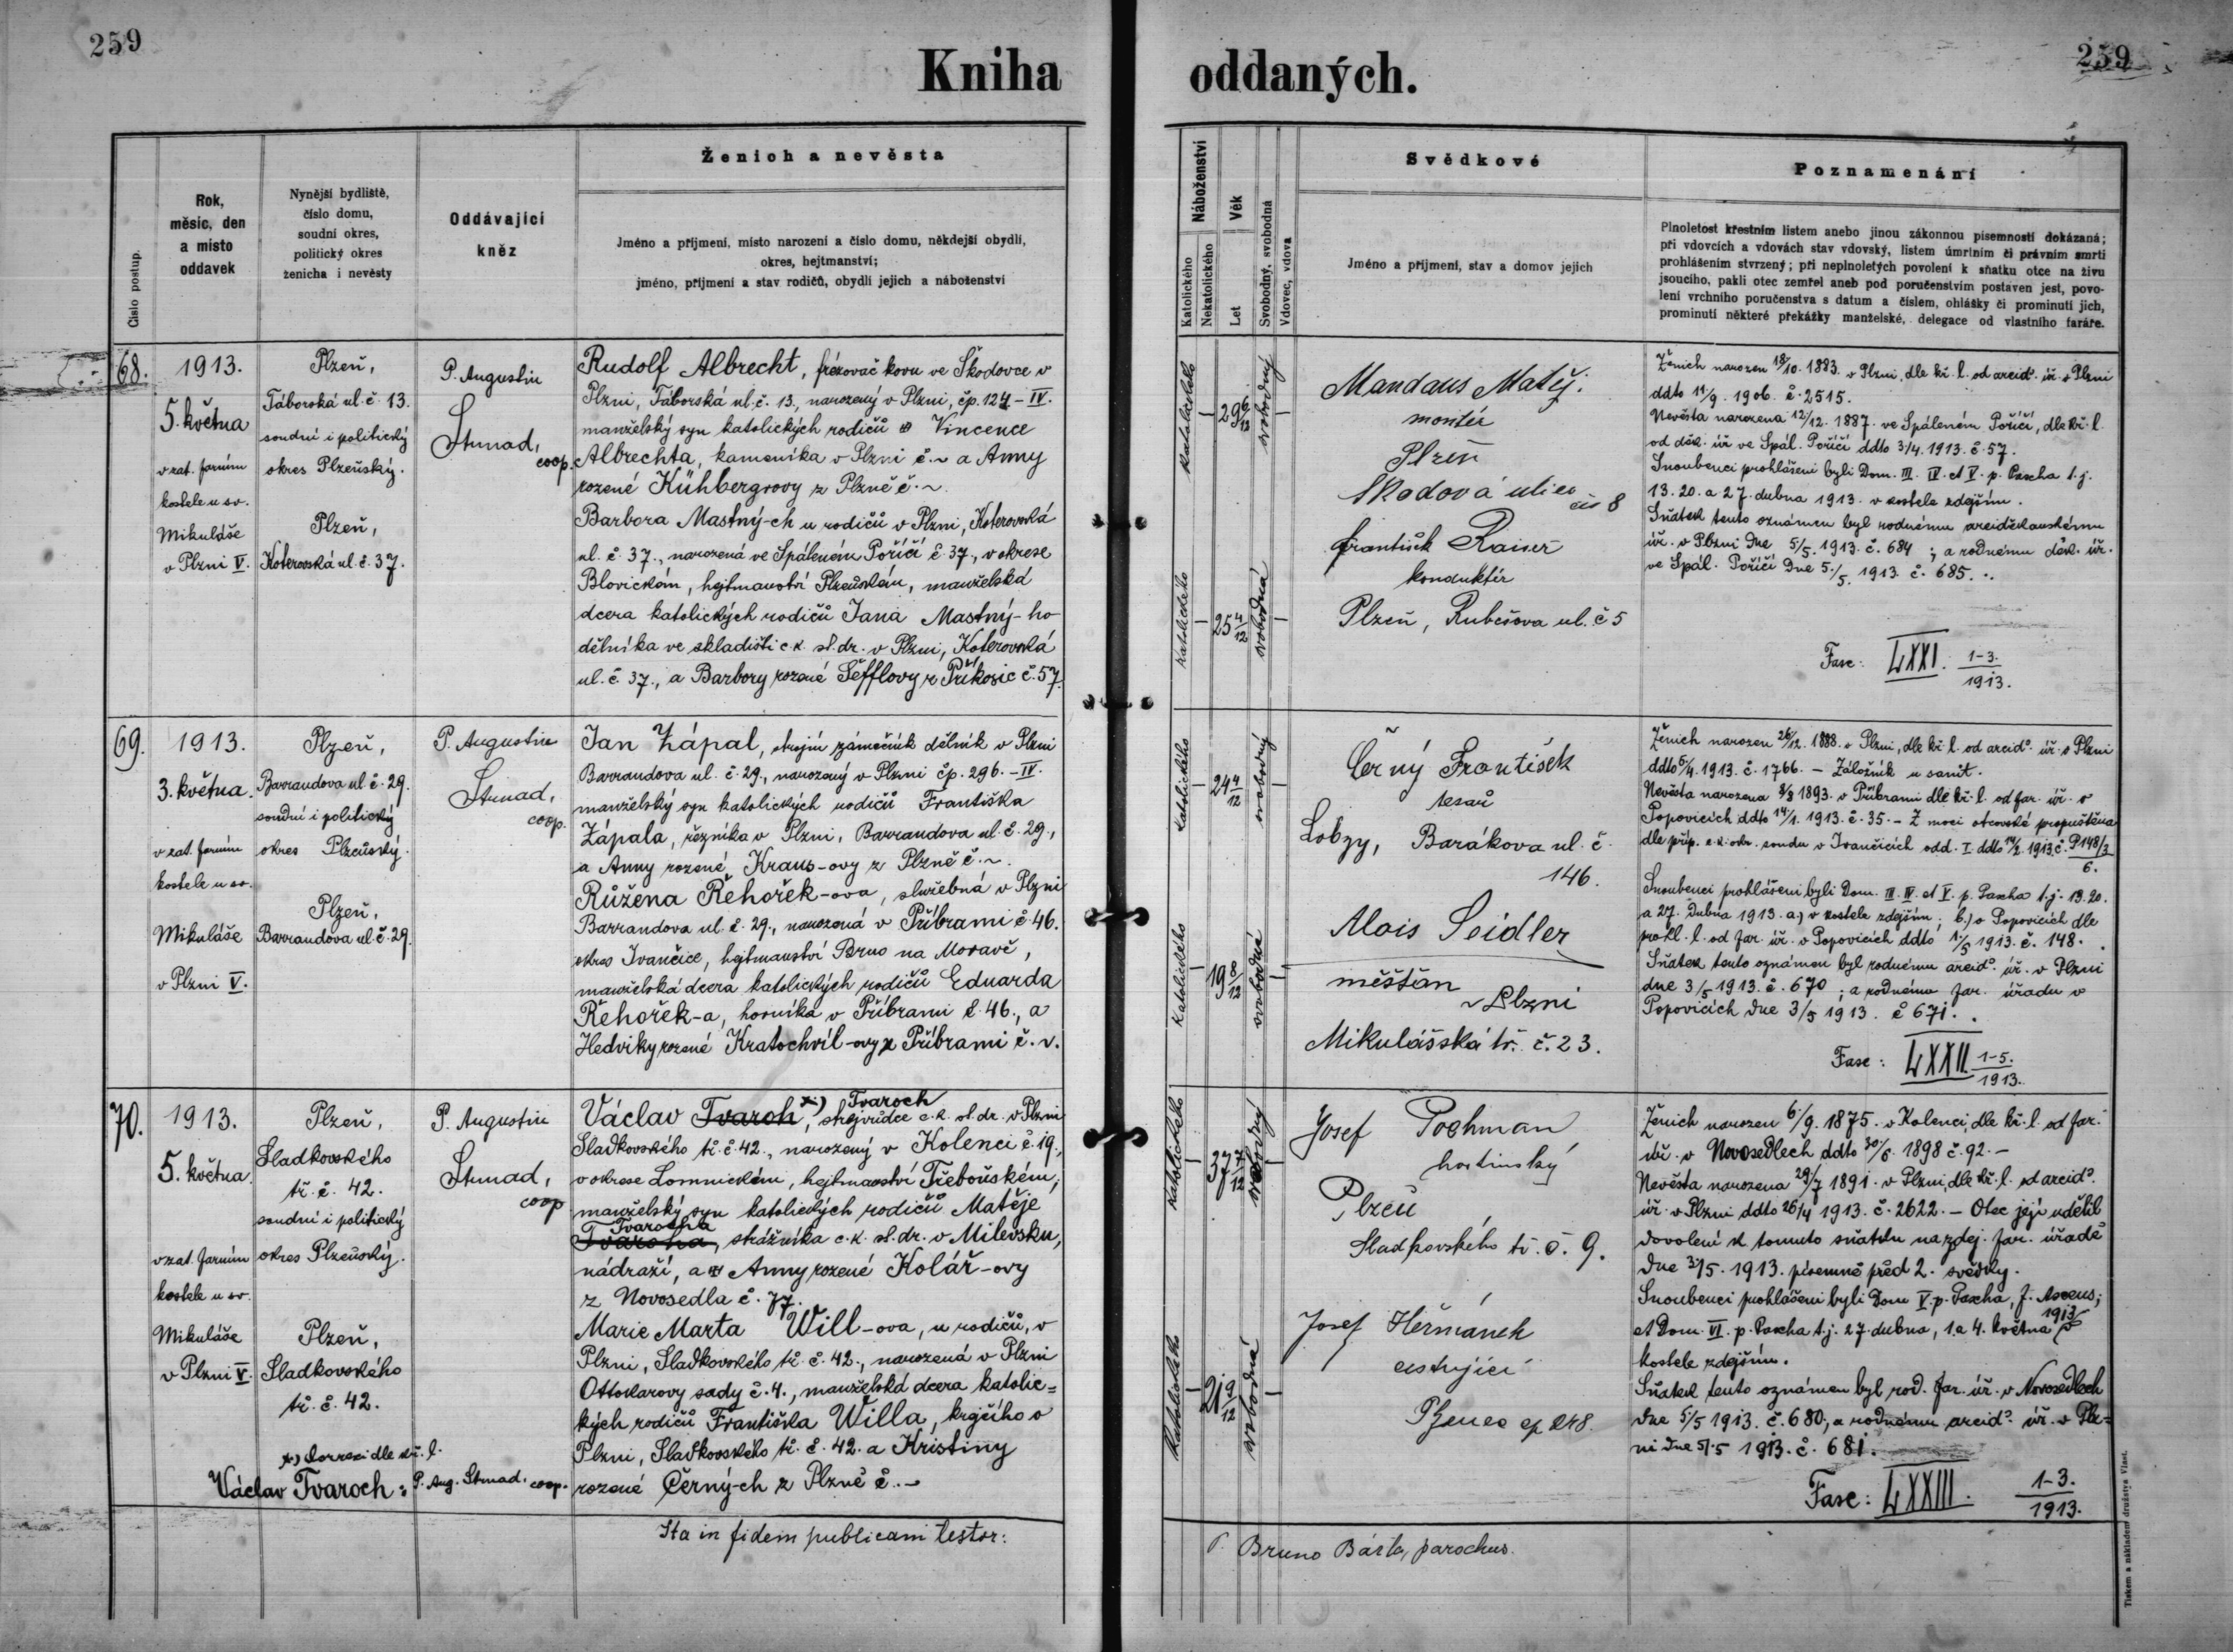 259
259
Kniha oddaných.
Číslo postup.
Rok,
měsíc, den
a místo
oddavek
Nynější bydliště,
číslo domu,
soudní okres,
politický okres
ženicha i nevěsty
Oddávající
kněz
Ženich a nevěsta
Jméno a příjmení, místo narození a číslo domu, někdejší obydlí,
okres, hejtmanství;
jméno, příjmení a stav rodičů, obydlí jejich a náboženství
Náboženství
Katolického
Nekatolického
Věk
Let
Svobodný, svobodná
Vdovec, vdova
Svědkové
Jméno a příjmení, stav a domov jejich
Poznamenání
Plnoletost křestním listem anebo jinou zákonnou písemností dokázaná;
při vdovcích a vdovách stav vdovský, listem úmrtním či právním smrti
prohlášením stvrzený; při neplnoletých povolení k sňatku otce na živu
jsoucího, pakli otec zemřel aneb pod poručenstvím postaven jest, povo-
lení vrchního poručenstva s datum a číslem, ohlášky či prominutí jich,
prominutí některé překážky manželské, delegace od vlastního faráře.
68.
1913.
5. května
v zat. farním
kostele u sv.
Mikuláše
v Plzni V.
Plzeň,
Táborská ul. č. 13.
soudní i politický
okres Plzeňský.
Plzeň,
Koterovská ul. č. 37.
P. Augustin
Strnad,
coop.
Rudolf Albrecht, frézovač kovu ve Škodovce v
Plzni, Táborská ul. č. 13., narozený v Plzni, čp. 124 - IV.
manželský syn katolických rodičů Vincence
Albrechta, kameníka v Plzni č. ~ a Anny
rozené Kühbergrovy z Plzně č. ~.
Barbora Mastný-ch u rodičů v Plzni, Koterovská
ul. č. 37., narozená ve Spáleném Poříčí č. 37., v okrese
Blovickém, hejtmanství Plzeňském, manželská
dcera katolických rodičů Jana Mastný-ho
dělníka ve skladišti c. k. st. dr. v Plzni, Koterovská
ul. č. 37., a Barbory rozené Šefflovy z Příkosic č. 57.
katolického
–
29 6/12
svobodný
–
katolického
–
25 4/12
svobodná
–
Mandaus Matěj.
montér
Plzeň
Škodová ulice
čís 8
František Kaiser
konduktér
Plzeň, Rubešova ul. č 5
Ženich narozen 18/10. 1883. v Plzni, dle kř. l. od arcid. úř. v Plzni
ddto 11/9. 1906. č. 2515.
Nevěsta narozena 12/12. 1887. ve Spáleném Poříčí, dle kř. l.
od děk. úř ve Spál. Poříčí ddto 3/4. 1913. č. 57.
Snoubenci prohlášeni byli Dom. III. IV. et V. p. Pascha t. j.
13. 20. a 27. dubna 1913. v kostele zdejším.
Sňatek tento oznámen byl rodnému arciděkanskému
úř. v Plzni dne 5/5. 1913. č. 684; a rodnému děk. úř.
ve Spál. Poříčí dne 5./5. 1913. č. 685.
Fasc: LXXI. 1-3./1913.
69.
1913.
3. května.
v zat. farním
kostele u sv.
Mikuláše
v Plzni V.
Plzeň,
Barrandova ul č. 29.
soudní i politický
okres Plzeňský.
Plzeň,
Barrandova ul. č. 29.
P. Augustin
Strnad,
coop.
Jan Zápal, strojní zámečník dělník v Plzni
Barrandova ul. č. 29., narozený v Plzni čp. 296. - IV.
manželský syn katolických rodičů Františka
Zápala, řezníka v Plzni, Barrandova ul. č. 29.,
a Anny rozené Kraus-ovy z Plzně č. ~.
Růžena Řehořek-ova, služebná v Plzni
Barrandova ul. č. 29., narozená v Příbrami č. 46.
okres Ivančice, hejtmanství Brno na Moravě,
manželská dcera katolických rodičů Eduarda
Řehořek-a, horníka v Příbrami č. 46., a
Hedviky rozené Kratochvíl-ovy z Příbrami č. v.
katolického
–
24 4/12
svobodný
–
katolického
–
19 8/12
svobodná
–
Černý František
tesař
Lobzy, Barákova ul. č.
146.
Alois Seidler
měšťan
v Plzni
Mikulášská tř. č. 23.
Ženich narozen 26/12. 1888. v Plzni, dle kř. l. od arcid. úř. v Plzni
ddto 5/4. 1913. č. 1766. – Záložník u sanit.
Nevěsta narozena 8/8 1893. v Příbrami dle kř. l. od far. úř. v
Popovicích ddto 14/1. 1913. č. 35. – Z moci otcovské propuštěna
dle příp. c. k. okr. soudu v Ivančicích odd. I ddto 14/2. 1913. č. P 148/3
6.
Snoubenci prohlášeni byli Dom. III. IV. et V. p. Pascha t. j. 13. 20.
a 27. dubna 1913. a.) v kostele zdejším; b.) v Popovicích dle
prohl. l. od far. úř. v Popovicích ddto 1./5 1913. č. 148.
Sňatek tento oznámen byl rodnému arcid. úř. v Plzni
dne 3/5 1913. č. 670; a rodnému far. úřadu v
Popovicích dne 3/5 1913. č 671.
Fasc: LXXII. 1-5./1913.
70.
1913.
5. května.
v zat. farním
kostele u sv.
Mikuláše
v Plzni V.
Plzeň,
Sladkovského
tř. č. 42.
soudní i politický
okres Plzeňský.
Plzeň,
Sladkovského
tř. č. 42.
P. Augustin
Strnad,
coop
x) Tvaroch
Václav Tvaroh, strojvůdce c. k. st. dr. v Plzni
Sladkovského tř. č. 42., narozený v Kolenci č. 19.,
v okrese Lomnickém, hejtmanství Třeboňském,
manželský syn katolických rodičů Matěje
Tvarocha
Tvaroha, strážníka c. k. st. dr. v Milevsku,
nádraží, a Anny rozené Kolář-ovy
z Novosedla č. 77.
Marie Marta Will-ova, u rodičů, v
Plzni, Sladkovského tř. č. 42., narozená v Plzni
Ottokarovy sady č. 4., manželská dcera katolic=
kých rodičů Františka Willa, krejčího v
Plzni, Sladkovského tř. č. 42. a Kristiny
rozené Černý-ch z Plzně č. ~
x) Correxi dle kř. l.
Václav Tvaroch: P. Aug. Strnad. coop.
katolického
–
37 7/12
svobodný
–
katolického
–
21 9/12
svobodná
–
Josef Pochman
hostinský
Plzeň
Sladkovského tř. č. 9.
Josef Heřmánek
Ženich narozen 6./9. 1875. v Kolenci, dle kř. l. od far.
úř. v Novosedlech ddto 30/6. 1898 č. 92. –
Nevěsta narozena 29/7 1891. v Plzni, dle kř. l. od arcid.
úř. v Plzni ddto 26/4 1913. č. 2622. – Otec její udělil
dovolení k tomuto sňatku na zdej. far. úřadě
dne 3/5. 1913. písemně před 2. svědky.
Snoubenci prohlášeni byli Dom V. p. Pascha, f. Ascens;
et Dom. VI. p. Pascha t. j. 27. dubna, 1. a 4. května 1913 v
kostele zdejším.
Sňatek tento oznámen byl rod. far. úř. v Novosedlech
dne 5/5 1913. č. 680; a rodnému arcid. úř. v Plz=
ni dne 5/5 1913. č. 681.
Fasc: LXXIII. 1-3./1913.
Ita in fidem publicam testor:
P. Bruno Bárta, parochus.
Tiskem a nákladem družstva Vlast.